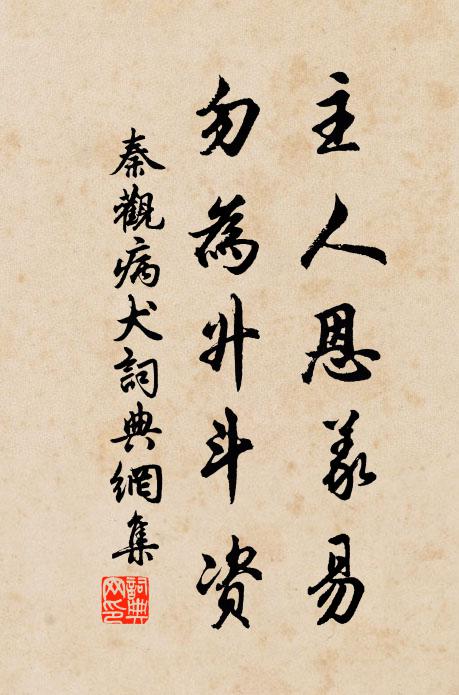 主人恩義易
勿為升斗资
秦觀病犬詞典網集
詞典网印